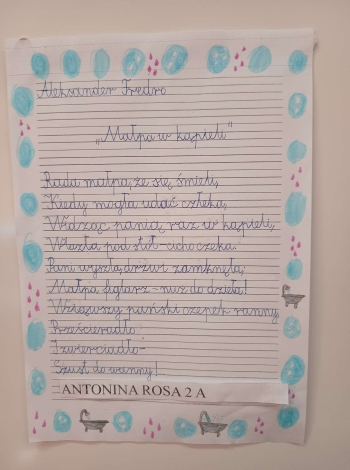 Aleksander Fredro
„Małpa w kąpieli"
Rada małpa, że się śmieli,
Kiedy mogła udać człeka,
Widząc panią raz w kąpieli,
Wlazła pod stół - cicho czeka.
Pani wyszła, drzwi zamknęła;
Małpa figlarz - nuż do dzieła!
Wziąwszy pański czepek ranny,
Prześcieradło
I zwierciadło -
Szust do wanny!
ANTONINA ROSA 2 A